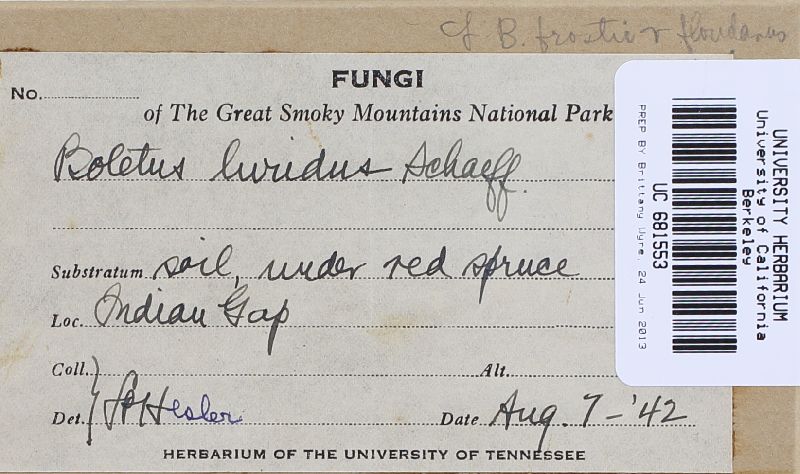 cf B. frostii v floridanus
No.
FUNGI
of The Great Smoky Mountains National Park
Boletus luridus Schaeff.
Substratum soil, under red spruce
Loc. Indian Gap
Coll.
Alt.
Det. LRHesler
Date Aug. 7-'42
HERBARIUM OF THE UNIVERSITY OF TENNESSEE
UNIVERSITY HERBARIUM
University of California
Berkeley
UC 681553
PREP BY Brittany 24 Jun 2013